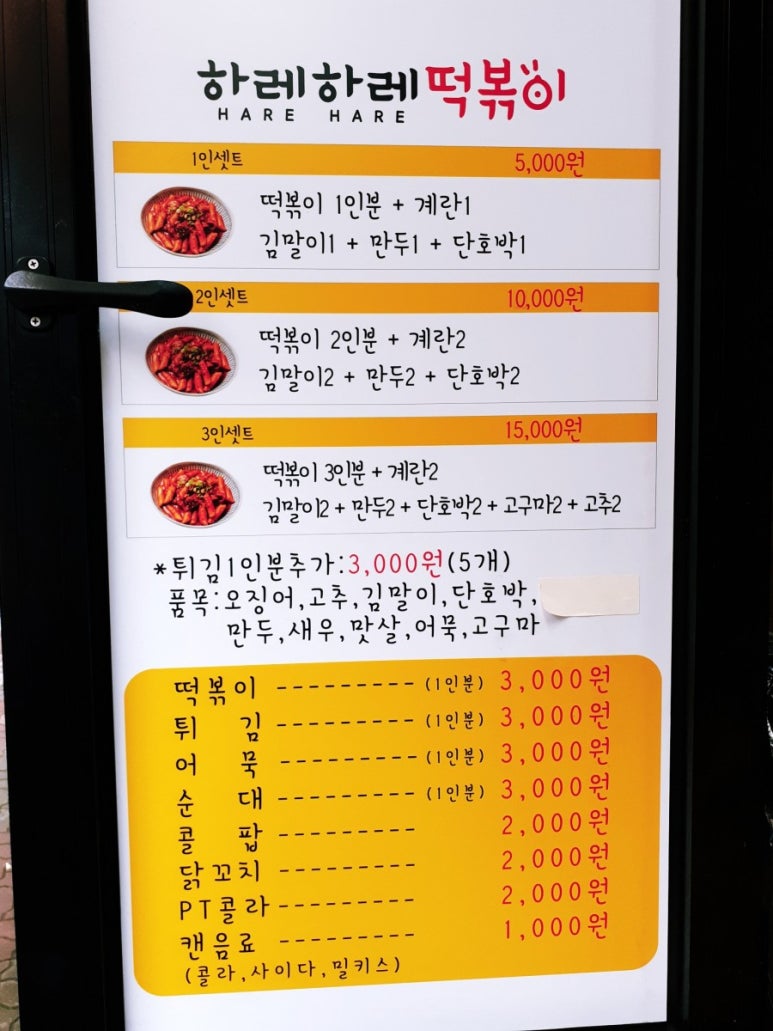 하레하레떡볶이
HARE HARE
1인셋트 5,000원
떡볶이 1인분 + 계란1
김말이1 + 만두1 + 단호박1
2인셋트 10,000원
떡볶이 2인분 + 계란2
김말이2 + 만두2 + 단호박2
3인셋트 15,000원
떡볶이 3인분 + 계란2
김말이2 + 만두2 + 단호박2 + 고구마2 + 고추2
*튀김1인분추가:3,000원(5개)
품목:오징어,고추,김말이,단호박,
만두,새우,맛살,어묵,고구마
떡볶이 --------- (1인분) 3,000원
튀 김 --------- (1인분) 3,000원
어 묵 --------- (1인분) 3,000원
순 대 --------- (1인분) 3,000원
콜 팝 --------- 2,000원
닭꼬치 --------- 2,000원
PT콜라 --------- 2,000원
캔음료 --------- 1,000원
(콜라,사이다,밀키스)